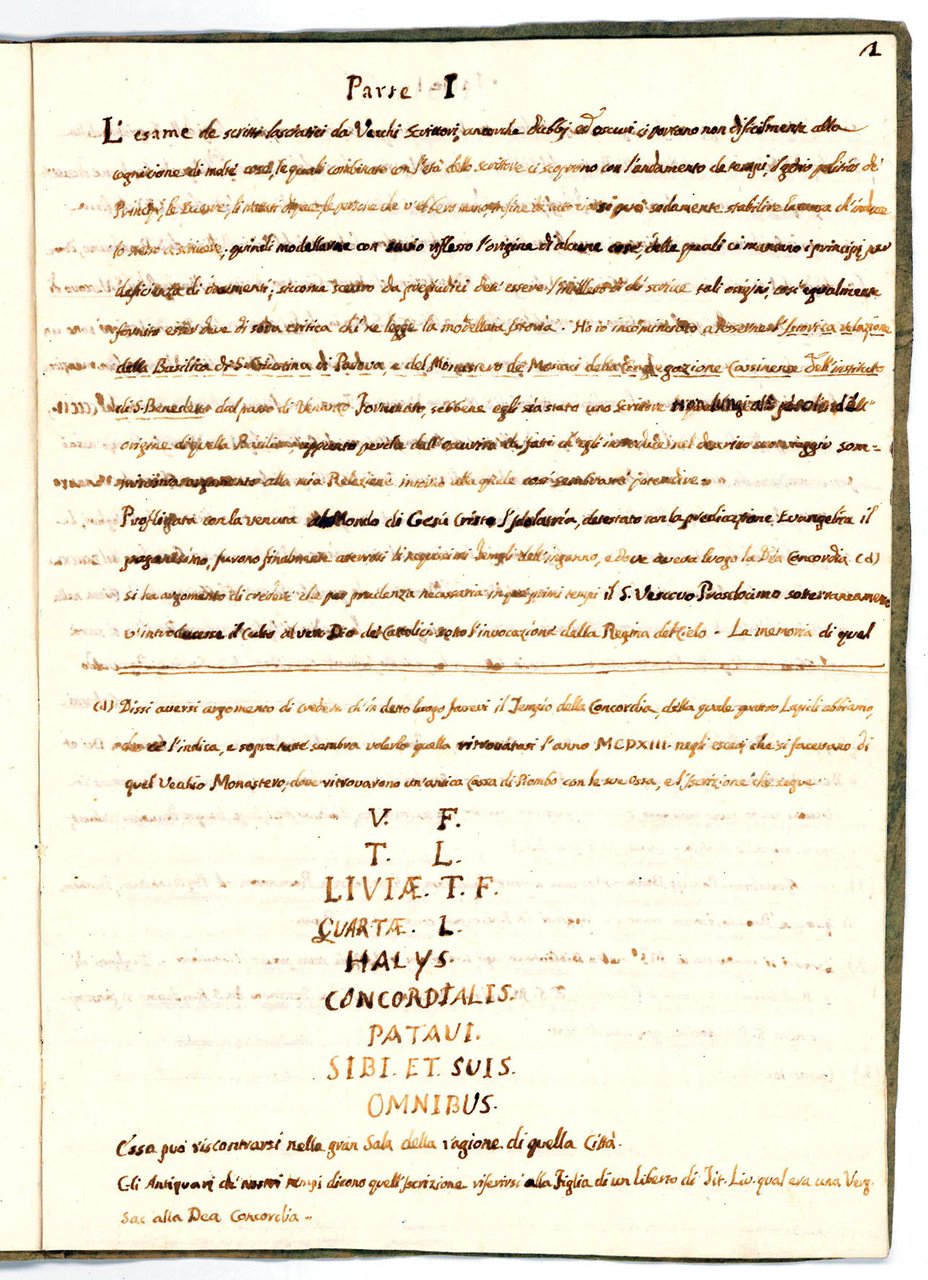 1
Parte I
L'esame de scritti lasciatici da Vecchi Scrittori, ancorche dubbj ed oscuri ci portano non dificilmente alla
cognizione di molte cose, le quali combinate con l'età dello scrittore ci scoprono con l'andamento de tempi, il genio politico de'
Principi, le Guerre, li trattati di pace, le persone che v'ebbero mano, infine di tutto ciò si può sodamente stabilire la
lo stesso a scrivere, quindi modellarne con savio riflesso l'origine di alcune cose, delle quali ci mancano i principj per
deficienza di documenti; siccome scevro da pregiudicj dev'essere l'intelletto di chi scrive tali origini, così egualmente
fornito esser deve di soda critica chi ne legge la modellata istoria. Ho io incominciato a tesserne l'Istorica relazione
della Basilica di S. Giustina di Padova e del Monastero de Monaci della Congregazione Cassinense dell'instituto
di S. Benedetto dal passo di Venanzo Fortunato, sebbene egli sia stato uno Scrittore non lungi dal secolo dell'
origine di quella Basilica, appunto perchè dall'oscurità de fatti ch'egli introduce nel descritto suo viaggio som=
ministra argomento alla mia Relazione intorno alla quale così sembrami potendire.
Profligata con la venuta al Mondo di Gesù Cristo l'Idolatria, detestato con la predicazione Evangelica il
paganesimo, furono finalmente atterrati li Templi dell'inganno, e dove aveva luogo la Dea Concordia (d)
si ha argomento di credere che per prudenza necessaria in quei primi tempi il S. Vescovo Prosdocimo sotterraneamente
v'introducesse il Culto al vero Dio de Cattolici sotto l'invocazione della Regina del Cielo - La memoria di quel
(d) Dissi aversi argomento di credere ch'in detto luogo fossevi il Tempio della Concordia, della quale quattro Lapidi abbiamo,
che ce l'indica, e sopratutto sembra volerlo quella ritrovatasi l'anno MCDXIII. negli escavi che si facevano di
quel Vechio Monastero, dove ritrovarono un'antica Cassa di Piombo con le sue Ossa, e l'Iscrizione che segue
V. F.
T. L.
LIVIÆ. T. F.
QUARTÆ. L.
HALYS.
CONCORDIALIS.
PATAUI.
SIBI. ET. SUIS.
OMNIBUS.
Essa può riscontrarsi nella gran Sala della ragione di quella Città.
Gli Antiquarj de' nostri tempi dicono quell'Iscrizione riferirsi alla Figlia di un liberto di Tit. Liv. qual era una Verg.
Sac. alla Dea Concordia -